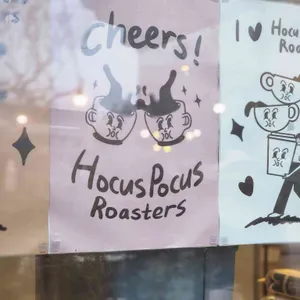 cheers!
Hocus Pocus
Roasters
I ♥ Hocu
Roa